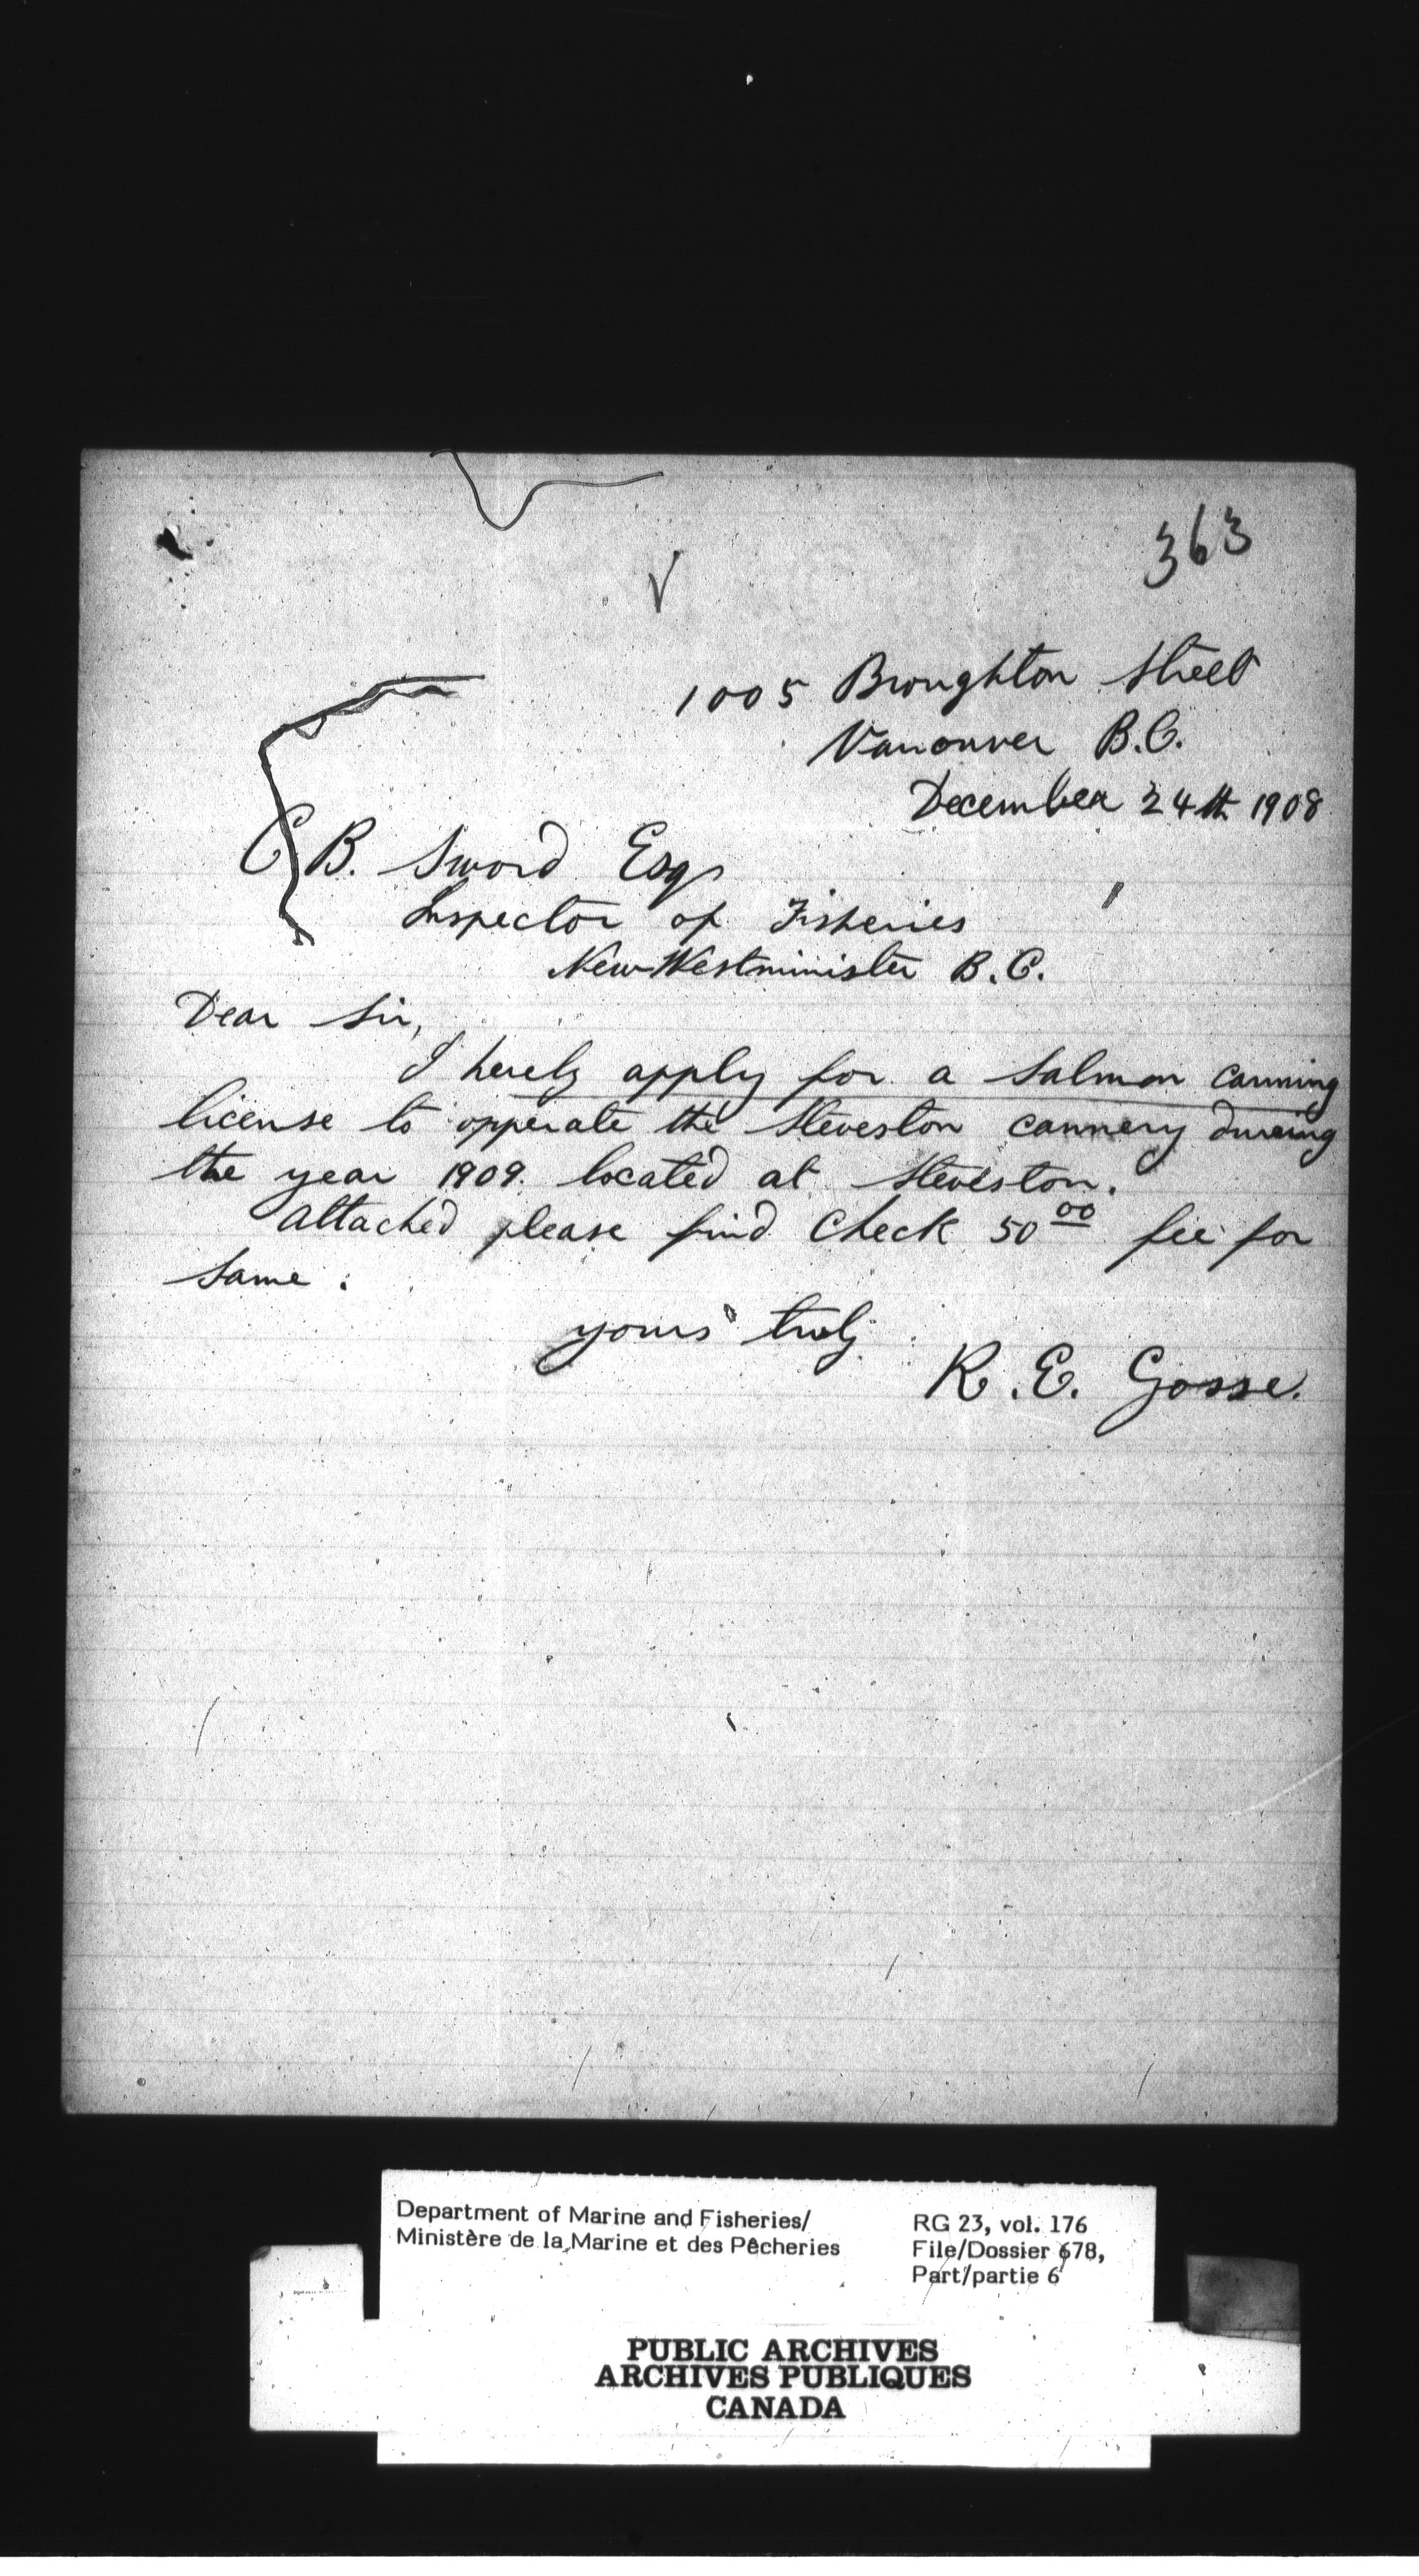 363
1005 Broughton Street
Vancouver B.C.
December 24th 1908
C. B. Sword Esq
Inspector of Fisheries
New Westminister B.C.
Dear Sir,
I hereby apply for a Salmon Canning
license to opperate the Steveston cannery during
the year 1909. located at Steveston.
Attached please find Check 50 00 fee for
Same.
yours truly
R. E. Gosse.
Department of Marine and Fisheries/
Ministère de la Marine et des Pêcheries
RG 23, vol. 176
File/Dossier 678,
Part/partie 6
PUBLIC ARCHIVES
ARCHIVES PUBLIQUES
CANADA